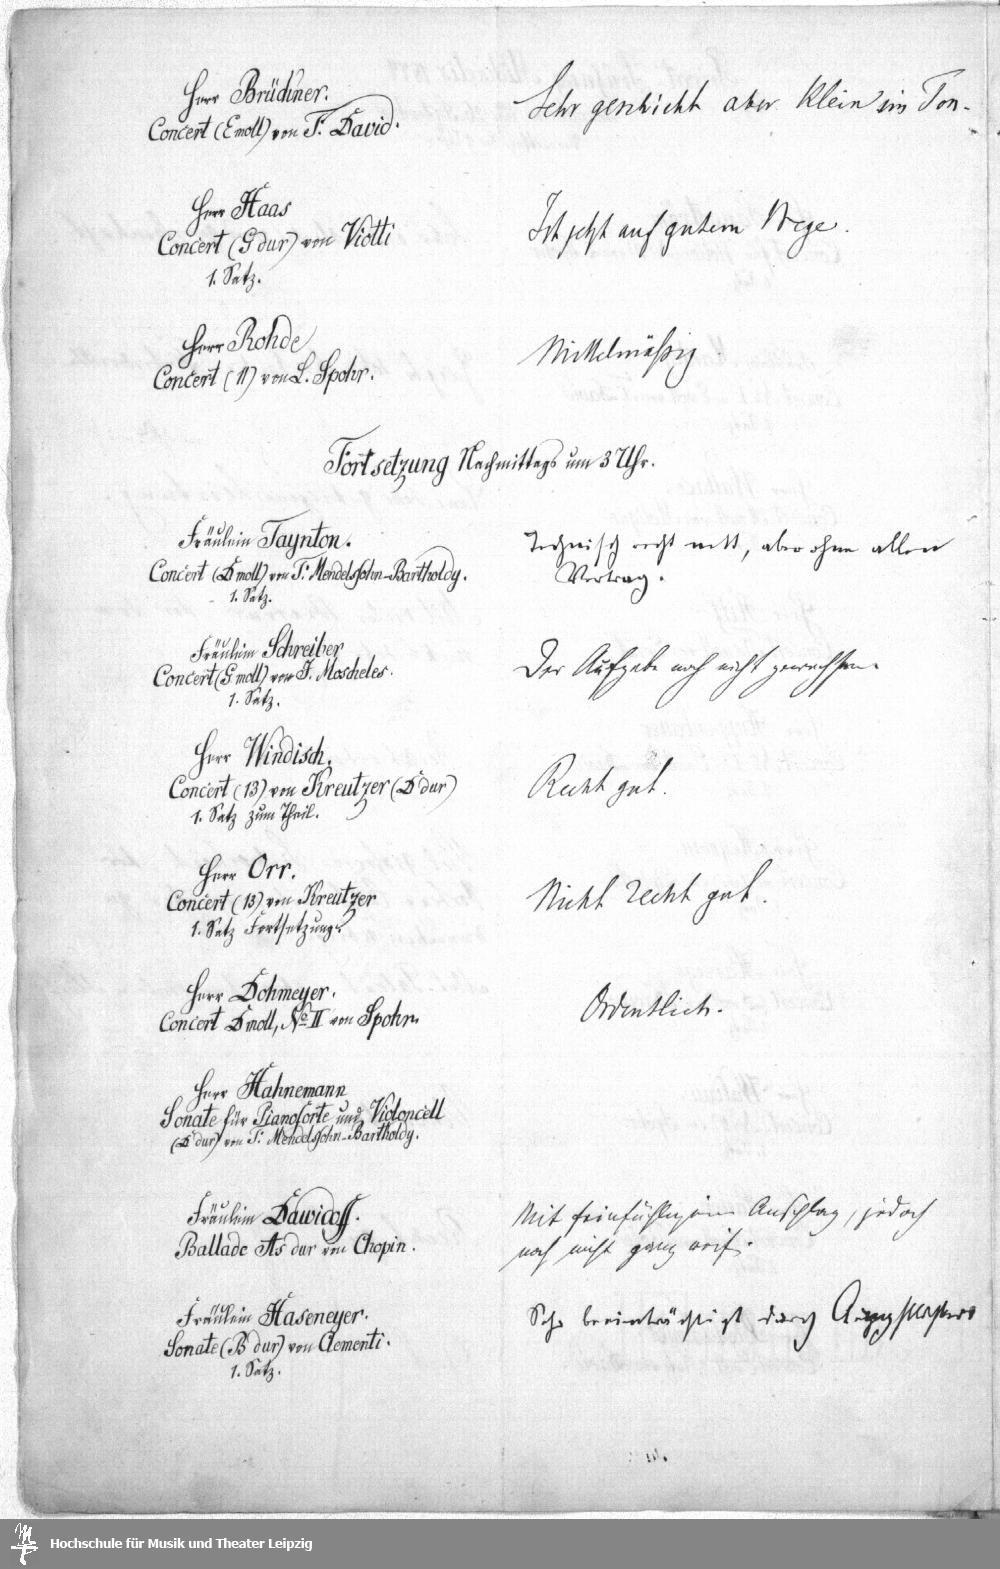 Herr Brückner.
Concert (E moll) von F. David.
Sehr geschickt aber klein im Ton.
Herr Haas
Concert (G dur) von Viotti
1. Satz.
Ist jetzt auf gutem Wege.
Herr Rohde
Concert (11) von L. Spohr.
Mittelmäßig
Fortsetzung Nachmittags um 3 Uhr.
Fräulein Taynton.
Concert (D moll) von F. Mendelssohn-Bartholdy.
1. Satz.
Technisch recht nett, aber ohne allen
Vortrag.
Fräulein Schreiber
Concert (G moll) von J. Moscheles.
1. Satz.
Der Aufgabe noch nicht gewachsen.
Herr Windisch.
Concert (13) von Kreutzer (D dur)
1. Satz zum Theil.
Recht gut.
Herr Orr.
Concert (13) von Kreutzer
1. Satz Fortsetzung.
Nicht recht gut.
Herr Dohmeyer.
Concert D moll, No II von Spohr.
Ordentlich.
Herr Hahnemann
Sonate für Pianoforte und Violoncell
(D dur) von F. Mendelssohn-Bartholdy.
Fräulein Dawidoff.
Ballade As dur von Chopin.
Mit feinfühligem Anschlag, jedoch
noch nicht ganz reif.
Fräulein Haseneyer.
Sonate (B dur) von Clementi.
1. Satz.
beeinträchtigt durch
Hochschule für Musik und Theater Leipzig